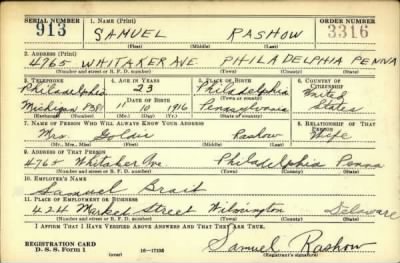 SERIAL NUMBER 1. NAME (Print) ORDER NUMBER
913 SAMUEL RASHOW 3316
(First) (Middle) (Last)
2. ADDRESS (Print)
4965 WHITAKER AVE PHILADELPHIA PENNA
(Number and street or R. F. D. number) (Town) (County) (State)
3. TELEPHONE 4. AGE IN YEARS 5. PLACE OF BIRTH 6. COUNTRY OF CITIZENSHIP
Philadelphia 23 Philadelphia United
DATE OF BIRTH (Town or county)
Michigan 11 10 1916 Pennsylvania States
(Exchange) (Number) (Mo.) (Day) (Yr.) (State or country)
7. NAME OF PERSON WHO WILL ALWAYS KNOW YOUR ADDRESS 8. RELATIONSHIP OF THAT PERSON
Mrs. Goldie Rashow Wife
(Mr., Mrs., Miss) (First) (Middle) (Last)
9. ADDRESS OF THAT PERSON
4965 Whitaker Ave Philadelphia Penna
(Number and street or R. F. D. number) (Town) (County) (State)
10. EMPLOYER'S NAME
Samuel
11. PLACE OF EMPLOYMENT OR BUSINESS
424 Market Street Wilmington Delaware
(Number and street or R. F. D. number) (Town) (County) (State)
I AFFIRM THAT I HAVE VERIFIED ABOVE ANSWERS AND THAT THEY ARE TRUE.
REGISTRATION CARD
D. S. S. Form 1 (over) 16—17105 Samuel Rashow
(Registrant's signature)